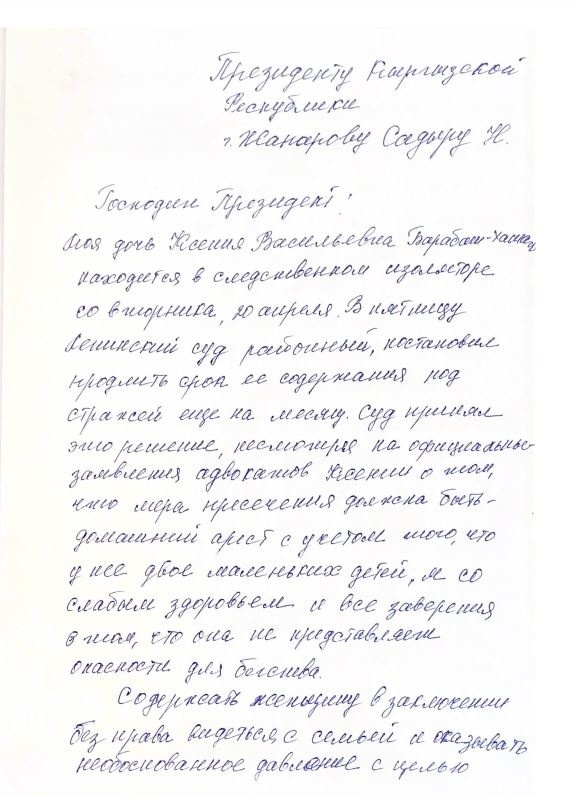 Президенту Кыргызской
Республики
г. Жапарову Садыру Н.
Господин Президент!
Моя дочь Ксения Васильевна Барабаш-
находится в следственном изоляторе
со вторника, 20 апреля. В пятницу
Ленинский суд районный, постановил
продлить срок ее содержания под
стражей еще на месяц. Суд принял
это решение, несмотря на официальные
заявления адвокатов Ксении о том,
что мера пресечения должна быть-
домашний арест с учетом того, что
у нее двое маленьких детей, и со
слабым здоровьем и все заверения
в том, что она не представляет
опасности для бегства.
Содержать женщину в заключении
без права видеться с семьей и оказывать
необоснованное давление с целью